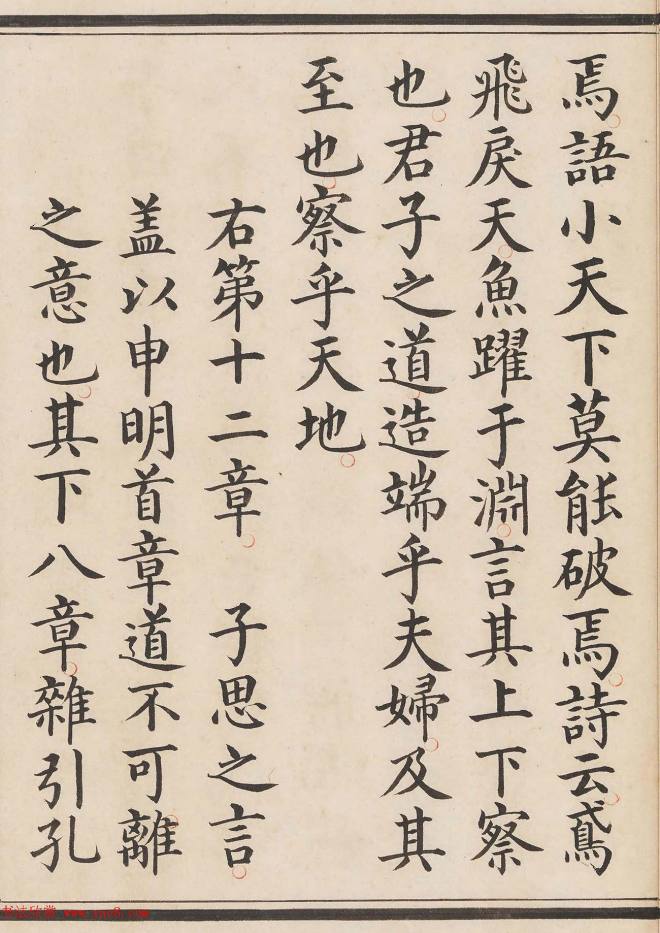 焉語小天下莫能破焉詩云鳶
飛戾天魚躍于淵言其上下察
也君子之道造端乎夫婦及其
至也察乎天地
右第十二章 子思之言
盖以申明首章道不可離
之意也其下八章雜引孔